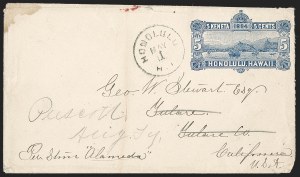 5 KENETA 1884 5 CENTS
5 5
HONOLULU, HAWAII.
HONOLULU
H.I.
Geo. W. Stewart Esq.
Prescott Tulare.
Tulare Co.
Per Stmr "Alameda" California
U.S.A.